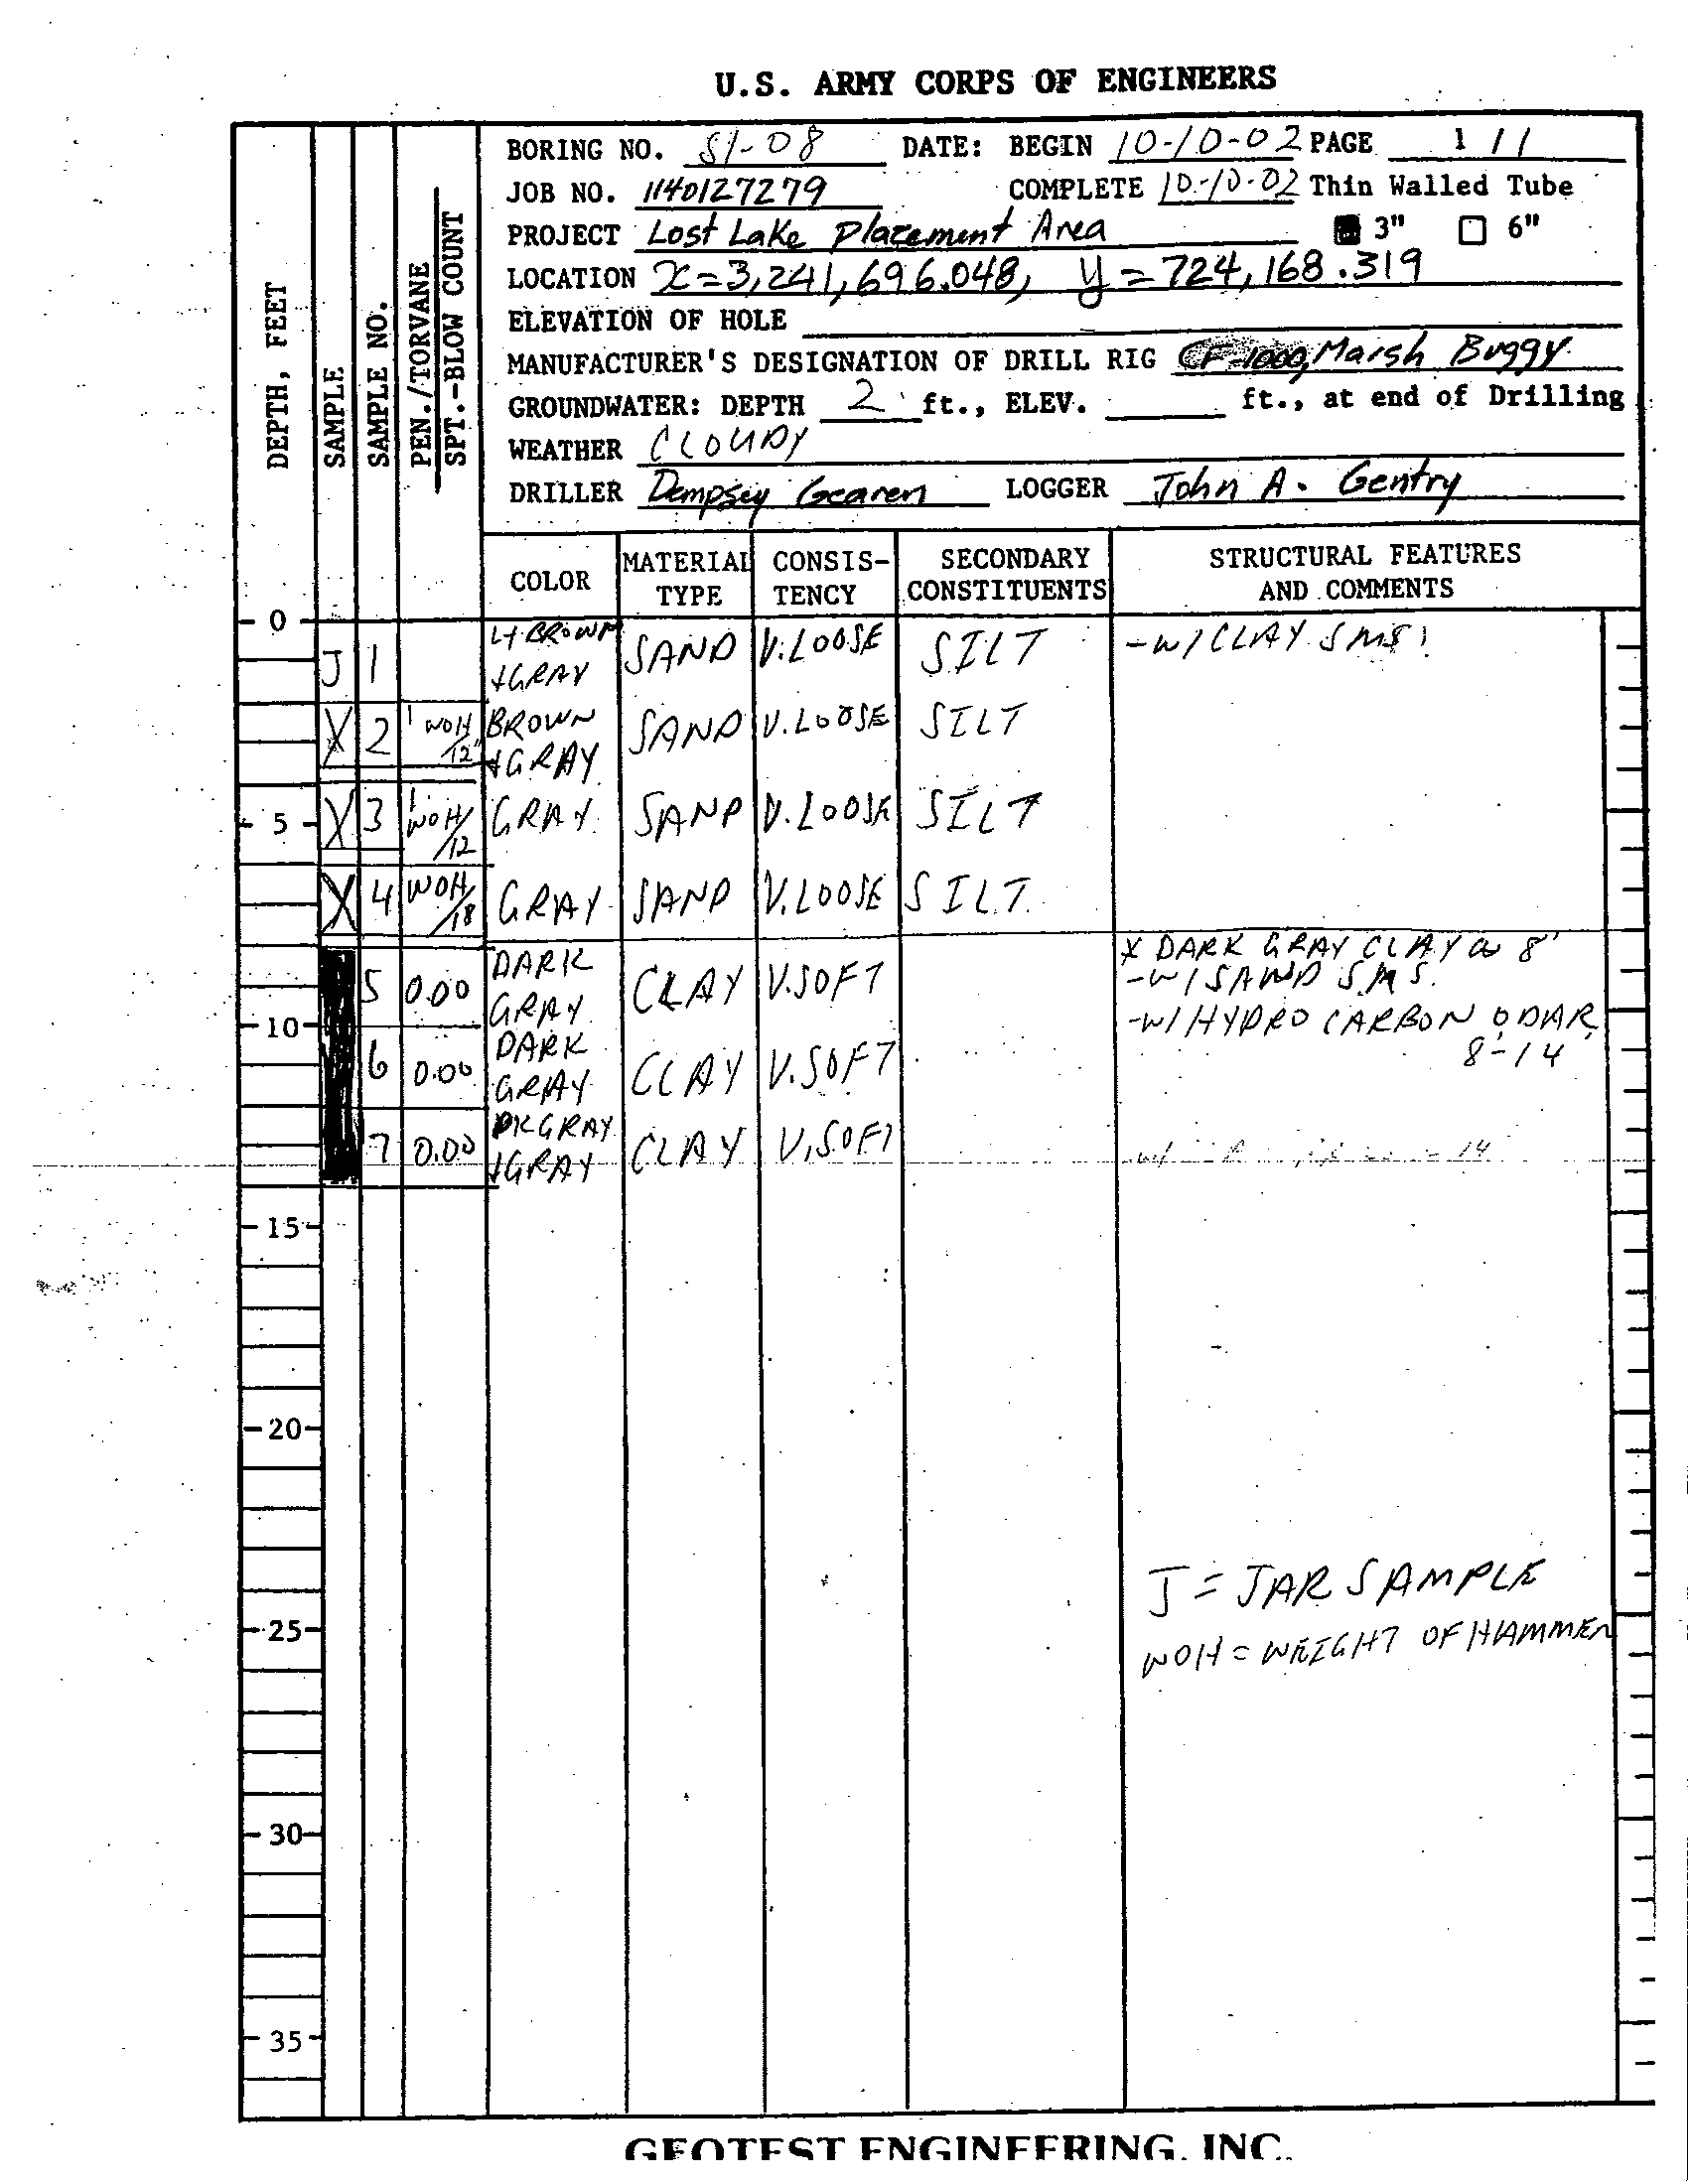 U.S. ARMY CORPS OF ENGINEERS
DEPTH, FEET
SAMPLE
SAMPLE NO.
PEN./TORVANE
SPT.-BLOW COUNT
BORING NO. S1-08 DATE: BEGIN 10-10-02 PAGE 1 / 1
JOB NO. 1140127279 COMPLETE 10-10-02 Thin Walled Tube
PROJECT Lost Lake Placement Area 3" 6"
LOCATION X=3,241,696.048, y=724,168.319
ELEVATION OF HOLE
MANUFACTURER'S DESIGNATION OF DRILL RIG CF-1000, Marsh Buggy
GROUNDWATER: DEPTH 2 ft., ELEV. ft., at end of Drilling
WEATHER CLOUDY
DRILLER Dempsey Gearen LOGGER John A. Gentry
COLOR MATERIAL TYPE CONSIS-TENCY SECONDARY CONSTITUENTS STRUCTURAL FEATURES AND COMMENTS
0
J 1 LT BROWN +GRAY SAND V.LOOSE SILT -W/CLAY SMS
X 2 1 WOH/12" BROWN +GRAY SAND V.LOOSE SILT
5 X 3 1 WOH/12 GRAY SAND V.LOOSE SILT
X 4 WOH/18 GRAY SAND V.LOOSE SILT
* DARK GRAY CLAY @ 8'
5 0.00 DARK GRAY CLAY V.SOFT -W/SAND SMS.
-W/HYDROCARBON ODAR
8'-14'
10
6 0.00 DARK GRAY CLAY V.SOFT
7 0.00 DKGRAY +GRAY CLAY V.SOFT w/ 14
15
20
J = JAR SAMPLE
25
WOH = WEIGHT OF HAMMER
30
35
GEOTEST ENGINEERING, INC.